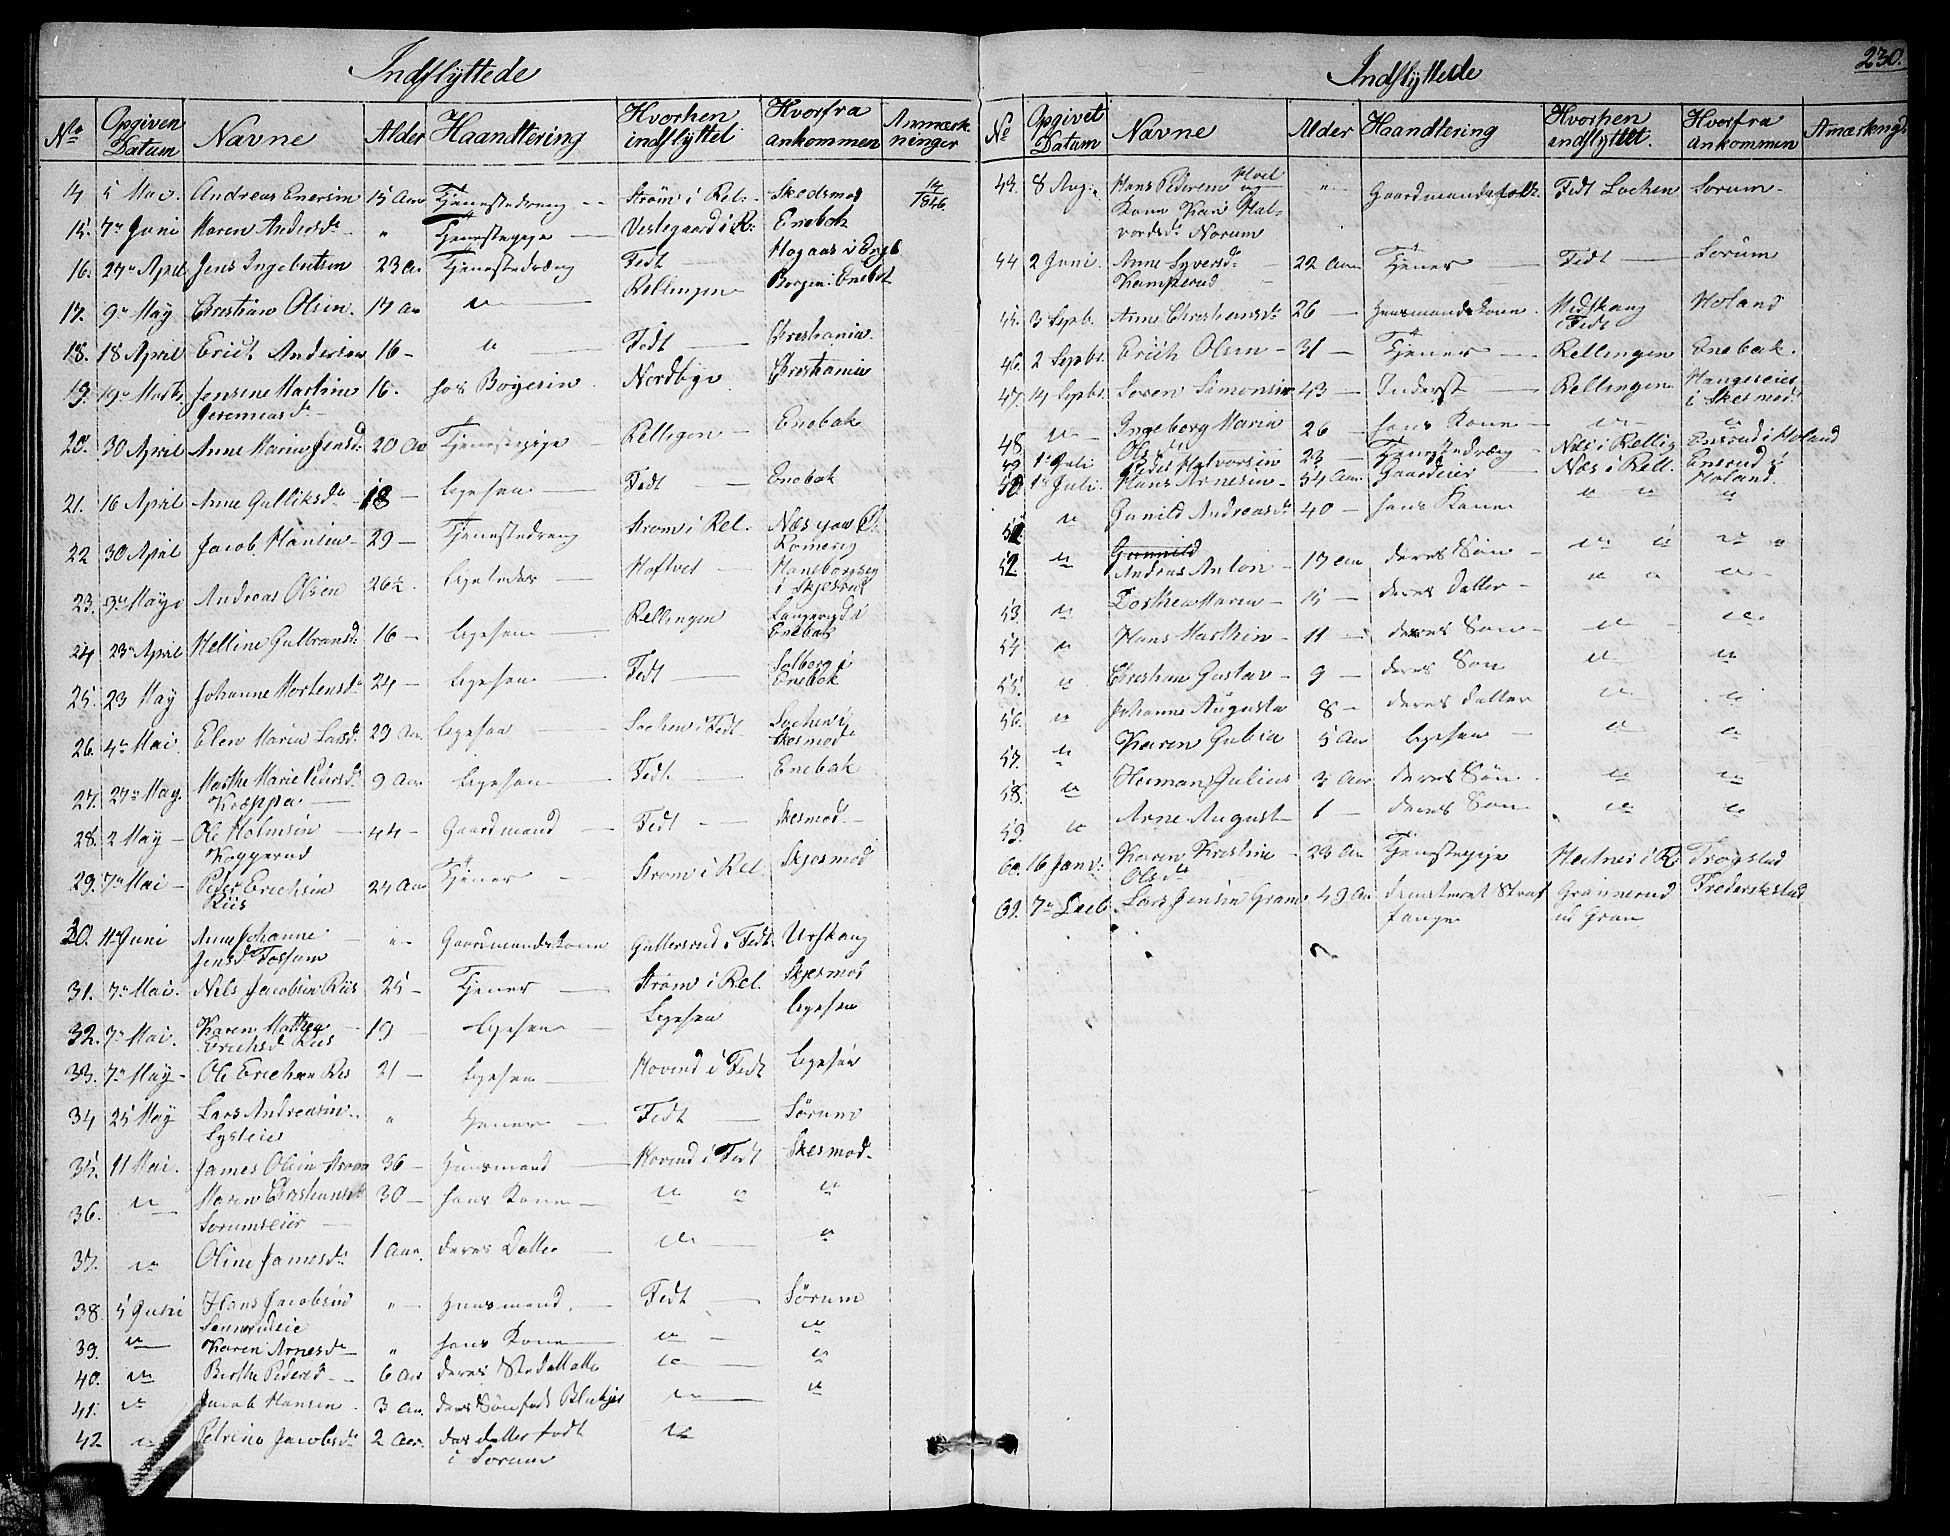 Indflyttede
No Opgiven Datum Navne Alder Haandtering Hvorhen indflyttet Hvorfra ankommen Anmærkninger
14 5 Mai Andreas Enersen 15 Aar Tjenestedreng Strøm i Rel. Skedsmod 14/1846.
15. 7de Juni Maren Andersd. " Tjenestepige Vestegaard i R. Enebak
16. 27de April Jens Ingebretsen 23 Aar Tjenestedreng Fedt Hogaas i Eneb
17. 9de May Christian Olsen. 17 Aar " Rellingen Borgen i Enebak
18. 18 April Erick Andersen 16 - " Fedt Christiania
19. 19de Marts Jensine Martine Jeremiasd. 16. hos Boyesen Nordbye Christiania
20. 30 April Anne Marie Jensd. 20 Aar Tjenestepige Rellingen Enebak
21. 16 April Anne Gulliksd. 18 - ligesaa Fedt Enebak
22 30 April Jacob Hansen 29 - Tjenestedreng Strøm i Rel. Næs paa Romerig
23. 3de May Andreas Olsen 26 ligeledes Hoftvet Haneborgseie i Skjesmod
24 23de April Helline Gulbransd. 16 - ligesaa Rellingen Enebak
25. 23 May Johanne Mortensd. 24 - ligesaa Fedt Solberg i Enebak
26. 4de Mai. Elen Maria Larsd. 23 Aar ligesaa Lochen i Fedt Lochen i Skesmod
27. 27de May. Marthe Marie Pedersd. Kræppa 9 Aar ligesaa Fedt Enebak
28. 2 May Ole Holmsen Koggerud 44 - Gaardmand Fedt Skesmod
29. 7de Mai Peder Erichsen Riis 24 Aar Tjener Strøm i Rel. Skjesmod
30. 11te Juni Anne Johanne Jensd. Fossum " Gaardmandskone Gullersrud i Fedt Urskaug
31. 7de Mai. Nils Jacobsen Riis 25 - Tjener Strøm i Rel. Skjesmod
32. 7de Mai. Karen Mathea Erichsd. Riis 19 ligesaa ligesaa ligesaa
33. 7de May Ole Erichsen Riis 21 - ligesaa Hovind i Fedt ligesaa
34 25 May Lars Andreasen Lysteie " tjener Fedt Sørum
35. 11 Mai. James Olsen Strøm 36 - Huusmand Hovind i Fedt Skesmod
36. " Maren Christiansd. Sorumseier 30 - hans Kone " " "
37. " Oline Jamesd. 1 Aar. deres Datter " "
38. 5 Juni Hans Jacobsen Sennerudeie " Huusmand Fedt Sørum
39. " Karen Arnesd. " hans Kone " "
40. " Berthe Pedersd. 6 Aar deres Stedatter " "
41. " Jacob Hansen 3 Aar. deres Søn født Blakjer " "
42 " Petrine Jacobsd. 2 Aar. der datter født i Sorum "
Indflyttede 230.
No Opgivet Datum Navne Alder Haandtering Hvorhen indflyttet. Hvorfra ankommen Anmærkng
43. 8 Aug. Hans Pedersen Hval og Kone Kari Halvordsd. Norum " Gaardmandsfolk Fedt Lochen Sorum
44 2 Juni. Anne Syversd. Kamperud 22 Aar Tjener Fedt Sorum
45. 3 Septb. Anne Christiansd. 26 - Huusmandskone Midskoug i Fedt Holand
46. 2 Septbr Erich Olsen 31 - Tjener Rellingen Enebak.
47. 14 Septbr. Soren Simonsen 43 - Inderst Rellingen Haugeseier i Skesmod
48. " Ingeborg Marie Olsd. 26 - hans Kone " "
49 1de Juli Peder Halvorsen 23 - Tjenestedreng Næs i Relling Ensrud i Holand
50 1de Juli. Hans Arnesen 34 Aar Gaardeier Næs i Rell. Ensrud i Holand
51 " Gunild Andreasd. 40 - hans Kone " " "
52. " Gunnild Andreas Anton 17 Aar deres Søn " " " "
53. " Dorthea Maren 15 - deres datter " " "
54 " Hans Marthin 11 - deres Søn " "
55. " Christian Gustav 9 - deres Søn " "
56. " Johanne Augusta 8 - deres datter " "
57. " Karen Gubia 5 Aar ligesaa " "
58. " Herman Julius 3 Aar deres Søn " "
59. " Arne August 1 - deres Søn " "
60. 16 Janv. Karen Kristine Olsd. 23 Aar Tjenestepige Hectner i R. Trogstad
61. 7de Lars Jensen Gran 49 Aar Straffange Grønnerud Frederikstad